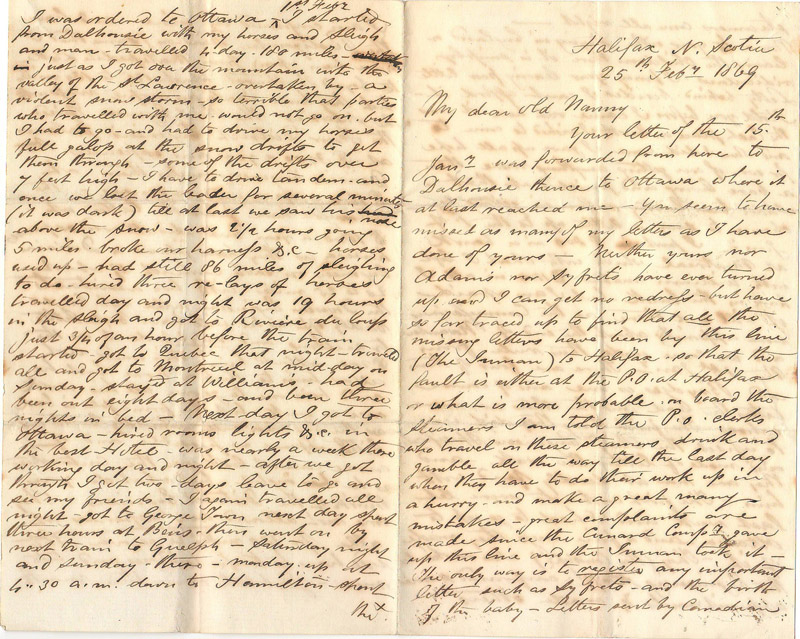 Halifax N. Scotia
25th Feby 1869
My dear old Nanny
Your letter of the 15th
Jany was forwarded from here to
Dalhousie thence to Ottawa where it
at last reached me - you seem to have
missed as many of my letters as I have
done of yours - Neither yours nor
Adams nor Syfrets have ever turned
up and I can get no redress - but have
so far traced up to find that all the
missing letters have been by this line
(The Inman) to Halifax - so that the
fault is either at the P.O. at Halifax
or what is more probable on board the
steamers I am told the P.O. clerks
who travel in these steamers drink and
gamble all the way till the last day
when they have to do their work up in
a hurry - and make a great many
mistakes - great complaints are
made since the Cunard Compy gave
up this line and the Inman took it -
The only way is to register any important
letter such as Syfrets - and the birth
of the baby - Letters sent by Canadian
1st Feby
I was ordered to Ottawa ^ I started
from Dalhousie with my horses and sleigh
and man - travelled 4 day - 180 miles -
in just as I got over the mountain into the
valley of the St Lawrence - overtaken by - a
violent snow storm - so terrible that parties
who travelled with me would not go on - but
I had to go - and had to drive my horses
full galop at the snow drifts to get
them through - some of the drifts over
7 feet high - I have to drive tandem - and
once we lost the leader for several minutes
(it was dark) till at last we saw his nose
above the snow - was 2 1/2 hours going
5 miles - broke our harness &c - horses
used up - had still 86 miles of sleighing
to do - hired three re-lays of horses
travelled day and night was 19 hours
in the sleigh and got to Rivière du loup
just 3/4 of an hour before the train
started - got to Quebec that night - travelled
all and got to Montreal at mid-day on
Sunday - stayed at Williams - had
been out eight days - and been three
nights in bed - Next day I got to
Ottawa - hired rooms lights &c. in
the best Hotel - was nearly a week there
working day and night - after we got
through I got two days leave to go and
see my friends - I again travelled all
night - got to George Town next day spent
three hours at Bens - then went on by
next train to Guelph - Saturday night
and Sunday - there - monday up at
4.30 a.m. down to Hamilton - spent
the